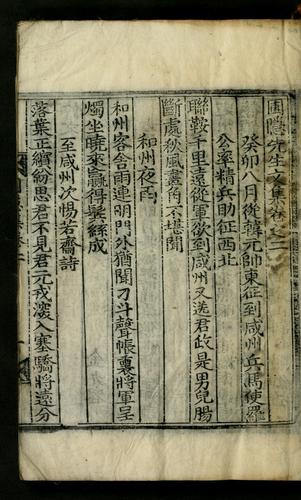 圃隱先生文集卷之二
癸卯八月從韓元帥東征到咸州兵馬使羅
公率精兵助征西北
聯鞍千里遠從軍欲到咸州又送君政是男兒腸
斷處秋風畫角不堪聞
和州夜雨
和州客舍雨連明門外猶聞刁斗聲帳裏將軍呈
燭坐曉來贏得鬢絲成
至咸州次惕若齋詩
落葉正繽紛思君不見君元戎深入塞驕將遠分